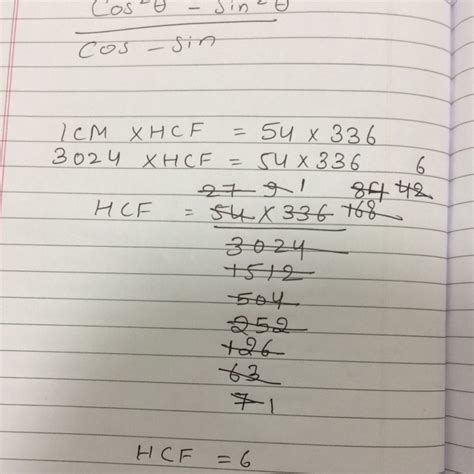 Cos²θ - Sin²θ
Cos - Sin
1CM X HCF = 54 X 336
3024 X HCF = 54 X 336 6
27 9 1 84 42
HCF = 54 X 336 168
3024
1512
504
252
126
63
7 1
HCF = 6